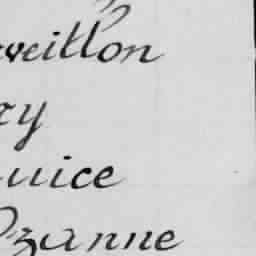 veillon
ry
uice
Ozanne